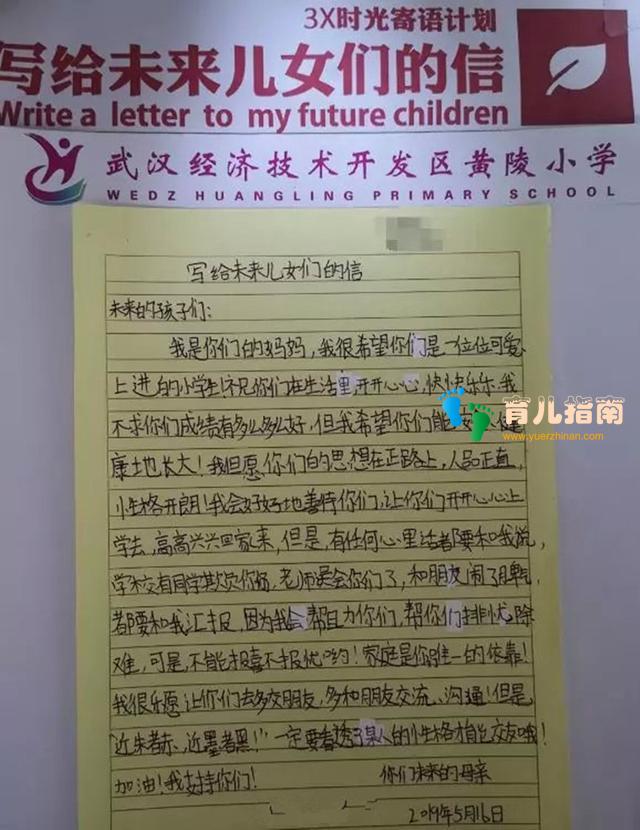 3X时光寄语计划
写给未来儿女们的信
Write a letter to my future children
武汉经济技术开发区黄陵小学
WEDZ HUANGLING PRIMARY SCHOOL
写给未来儿女们的信
未来的孩子们:
我是你们的妈妈,我很希望你们是一位位可爱、
上进的小学生!祝你们在生活里开开心心,快快乐乐.我
不求你们成绩有多么多么好,但我希望你们能安 健
康地长大!我但愿你们的思想在正路上,人品正直,
小性格开朗!我会好好地善待你们,让你们开开心心上
学去,高高兴兴回家来,但是,有任何心里话都要和我说,
学校有同学欺负你们,老师误会你们了,和朋友闹了
都要和我汇报,因为我会帮助你们,帮你们排忧除
难,可是,不能报喜不报忧哟!家庭是你唯一的依靠!
我很乐愿让你们去多交朋友,多和朋友交流、沟通!但是,
"近朱者赤,近墨者黑!"一定要看透了某人的小性格才能交友哦!
加油!我支持你们!
你们未来的母亲
2019年5月16日
育儿指南
www.yuerzhinan.com